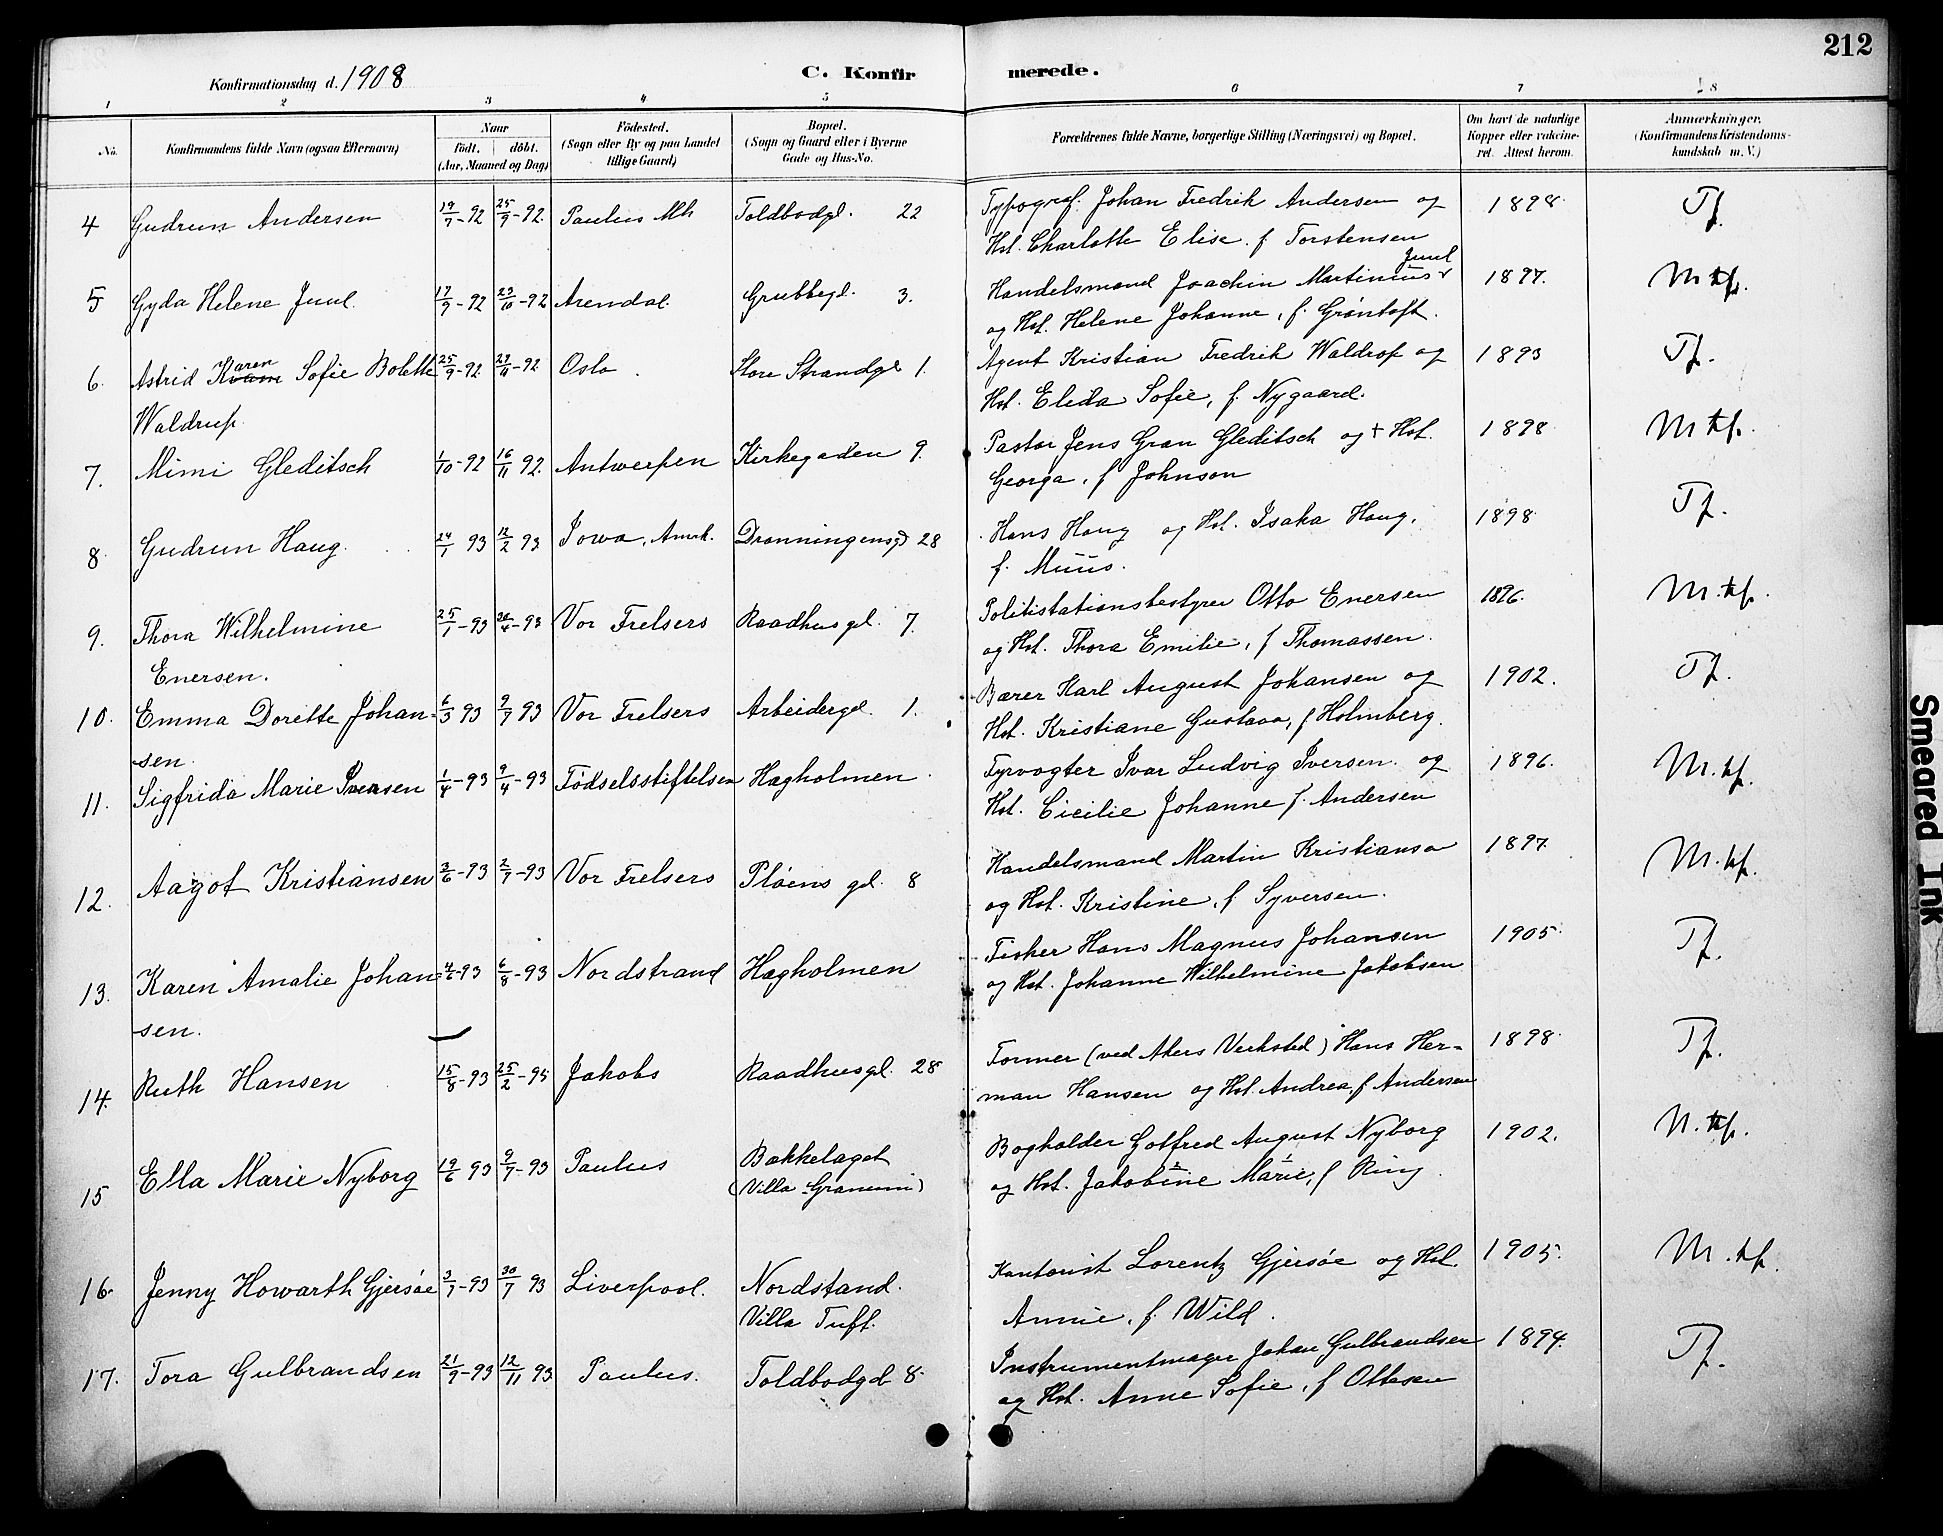 212
Konfirmationsdag d. 1908
C. Konfirmerede.
1 2 3 4 5 6 7 8
No. Konfirmandens fulde Navn (ogsaa Efternavn) Naar født. døbt. (Aar, Maaned og Dag) Fødested. (Sogn eller By og paa Landet tillige Gaard) Bopæl. (Sogn og Gaard eller i Byerne Gade og Hus-No. Forældrenes fulde Navne, borgerlige Stilling (Næringsvei) og Bopæl. Om havt de naturlige Kopper eller vakcineret. Attest herom. Anmærkninger. (Konfirmandens Kristendomskundskab m. V.)
4 Gudrun Andersen 19/7-92 25/9-92 Paulus Mh Toldbodgd. 22 Typograf. Johan Fredrik Andersen og 1898 Tf.
Hst. Charlotte Elise. f Torstensen
5 Gyda Helene Juul. 17/9-92 23/10-92 Arendal. Grubbegd. 3. Handelsmand Joachin Martinius Juul 1897. M tf.
og Hst. Helene Johanne, f. Grøntoft.
6. Astrid Karen Sofie Bolette 25/9-92 27/11-92 Oslo. Store Strandgd 1. Agent Kristian Fredrik Waldrop og 1893 Tf.
Waldrup. Hst. Elida Sofie, f. Nygaard.
7. Mimi Gleditsch 1/10-92 16/11 92. Antwerpen Kirkegaden 9. Pastor Jens Gran Gleditsch og + Hst. 1898 M tf.
Georga, f Johnson
8. Gudrun Haug. 24/1 93 12/2 93 Iowa, Amrk. Dronningensgd 28 Hans Haug og Hst. Isaka Haug, 1898 Tf.
f. Muus.
9. Thora Wilhelmine 25/1-93 30/4-93 Vor Frelsers Raadhusgd. 7. Politistationsbestyrer Otto Enersen 1896. M. tf.
Enersen. og Hst. Thora Emilie, f Thomassen.
10. Emma Dorette Johan- 6/3 93 9/7 93 Vor Frelsers Arbeidergd. 1. Bærer Karl August Johansen og 1902. Tf.
sen. Hst. Kristiane Gustava, f Holmberg.
11. Sigfrida Marie Iversen 1/4-93 9/4-93 Fødselsstiftelsen Hægholmen. Fyrvogter Ivar Ludvig Iversen. og 1896. M. tf.
Hst. Cicilie Johanne f. Andersen
12. Aagot Kristiansen 3/6-93 2/7-93 Vor Frelsers Pløens gd. 8 Handelsmand Martin Kristiansen 1897. M. tf.
og Hst. Kristine, f Syversen.
13. Karen Amalie Johan- 4/6-93 6/8-93 Nordstrand Hægholmen Fisker Hans Magnus Johansen 1905. Tf.
sen. og Hst. Johanne Wilhelmine Jakobsen
14. Ruth Hansen 15/8-93 25/2-95 Jakobs Raadhusgd. 28 Former (ved Akers Verksted) Hans Her- 1898. Tf.
man Hansen og Hst. Andrea, f Andersen
15 Ella Marie Nyborg 19/6 93 9/7-93 Paulus Bækkelaget Bogholder Gotfred August Nyborg 1902. M. tf.
(Villa Granum) og Hst. Jakobine Marie, f Ring.
16. Jenny Howarth Gjersøe 3/7-93 30/7 93 Liverpool. Nordstand. Kontorist Lorentz Gjersøe og Hst. 1905. M. tf.
Villa Tuft. Annie, f. Wild.
17. Tora Gulbrandsen 21/9-93 12/11 93. Paulus. Toldbodgd 8. Instrumentmager Johan Gulbrandsen 1894. Tf.
og Hst. Anne Sofie, f Ottesen
Smeared Ink